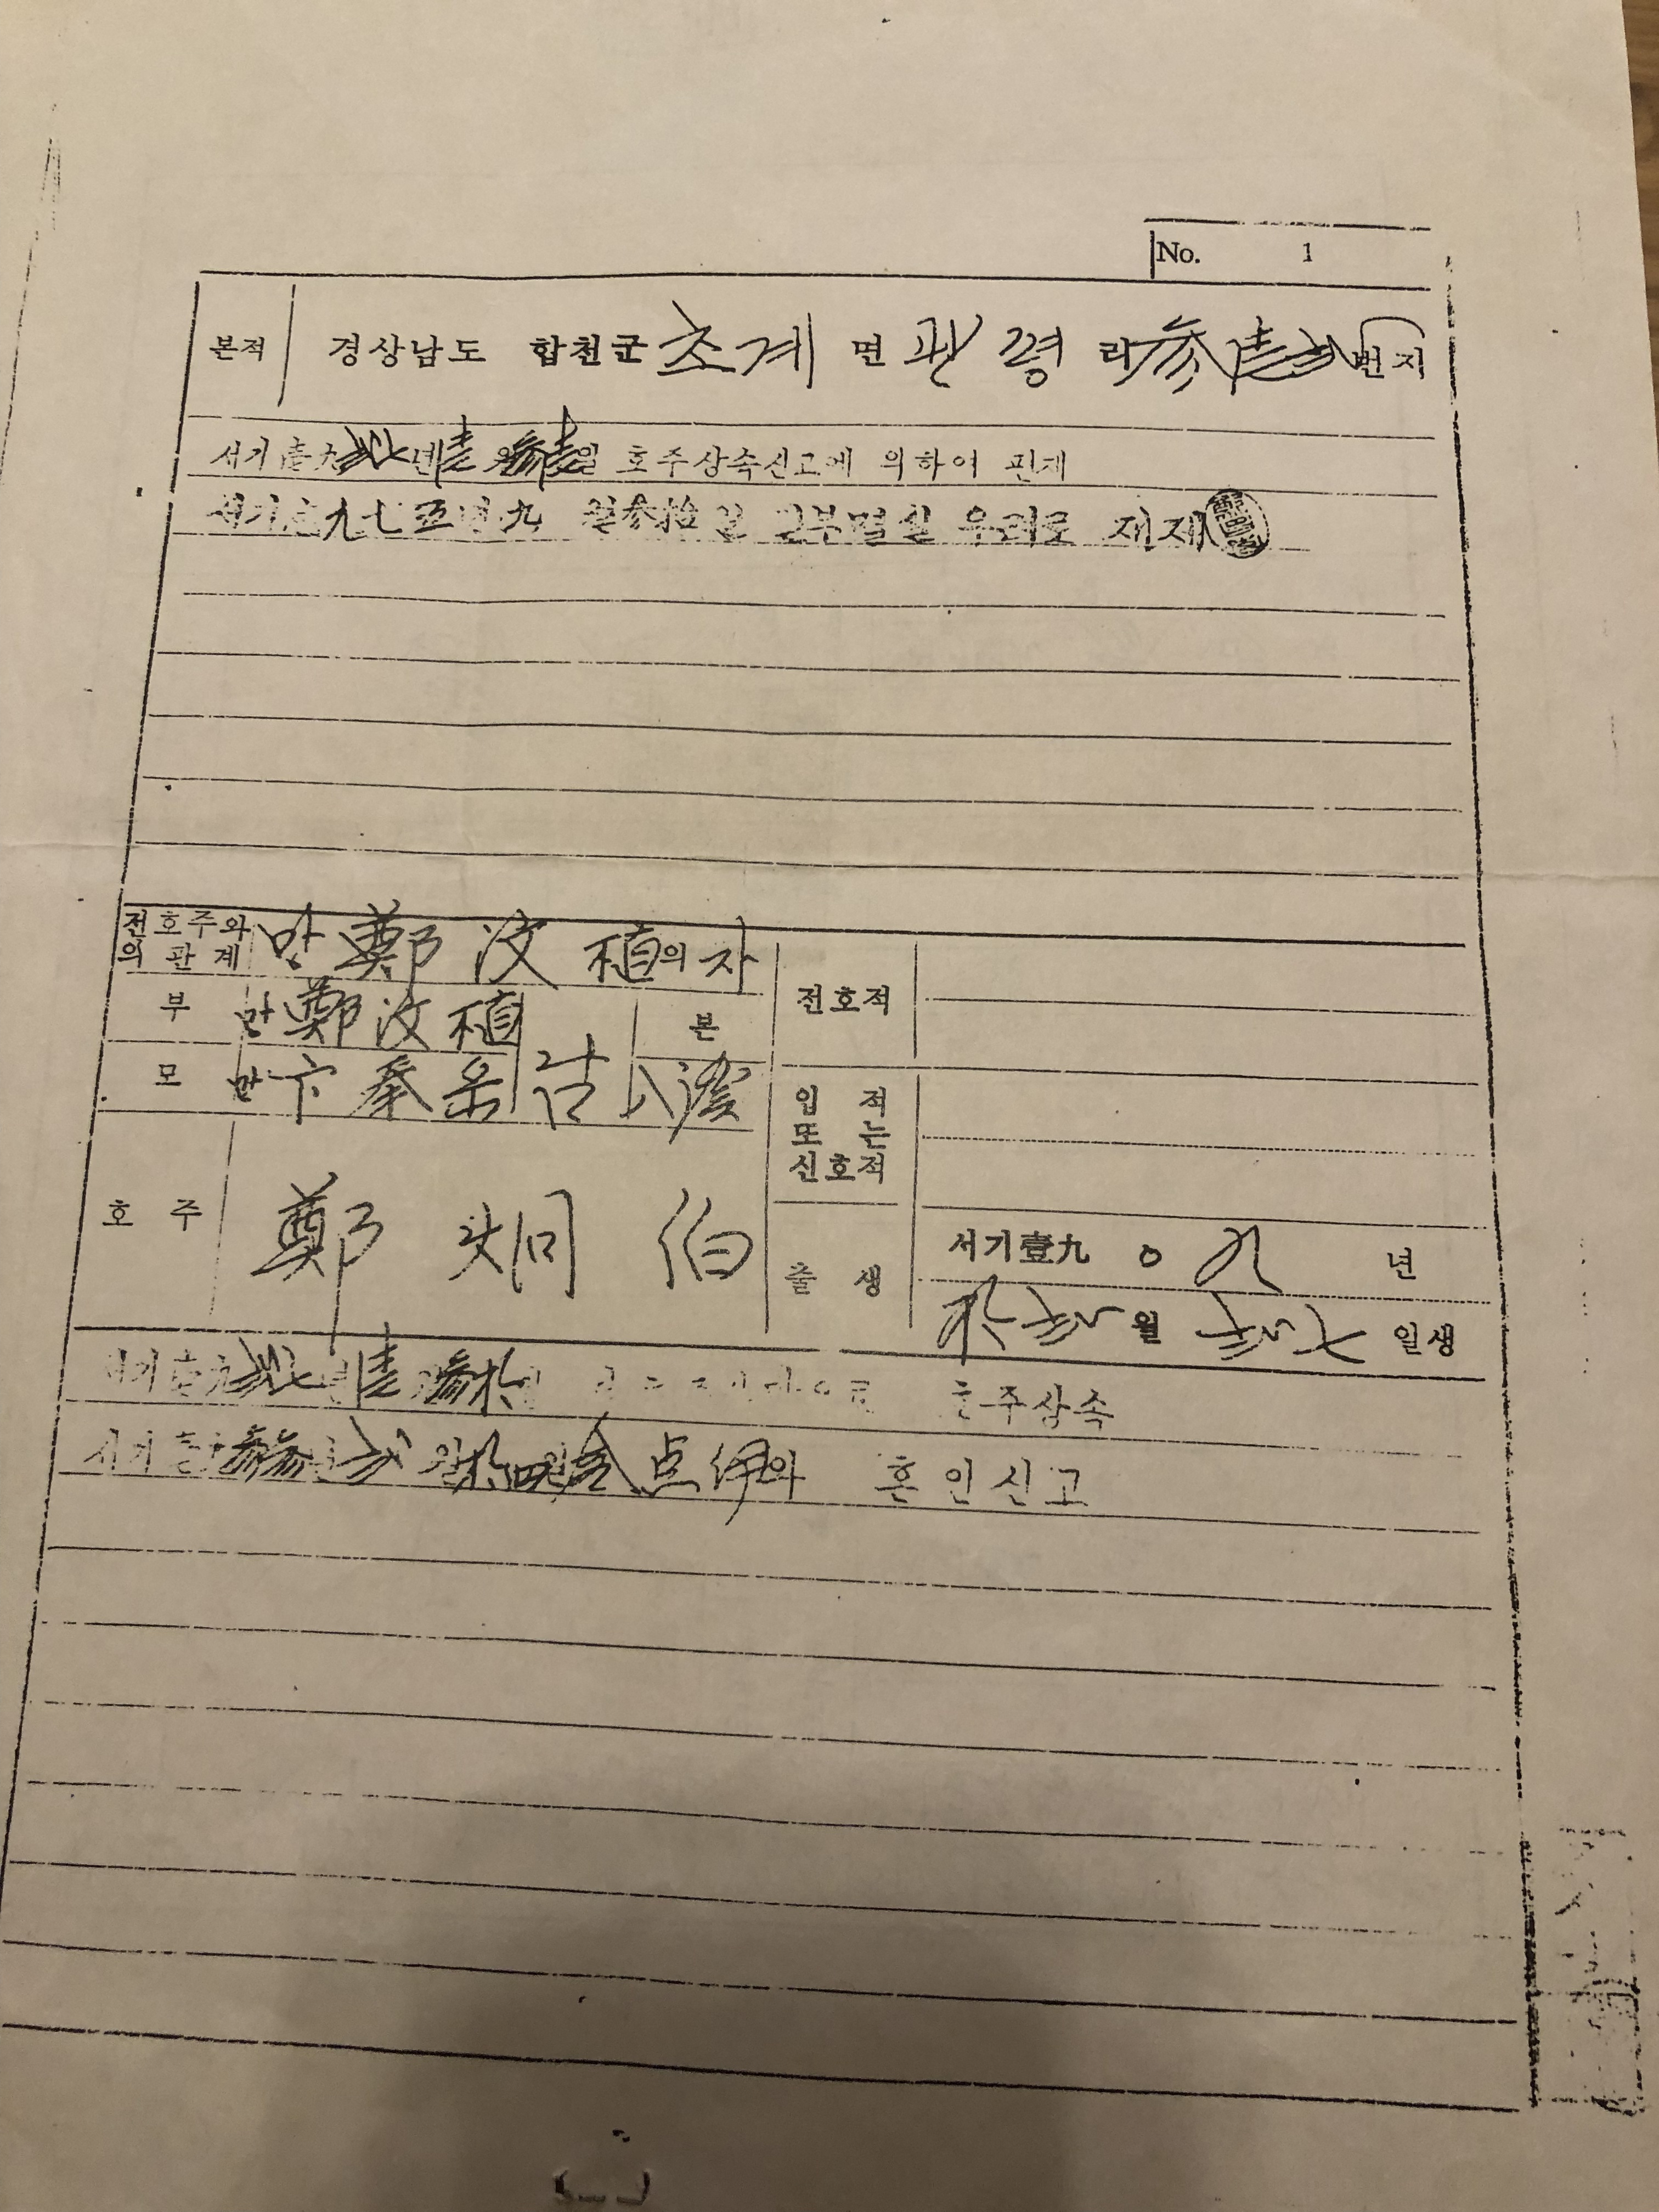 No. 1
본적 경상남도 합천군 초계 면 관령 리 参壹弍 번지
서기壹九弍七년壹월参壹일 호주상속신고에 의하여 편제
서기壹九七五년九월参拾일 일부멸실 우려로 재제
전호주와의 관계 망鄭汶植의 자
부 망鄭汶植
본
모 망卞
전호적
입적 또는 신호적
호주 鄭炯伯
출생 서기壹九〇九년
拾弍월弍七일생
서기壹九弍七년壹월参拾일 호주상속
서기壹九参参년弍월拾四일金点伊와 혼인신고